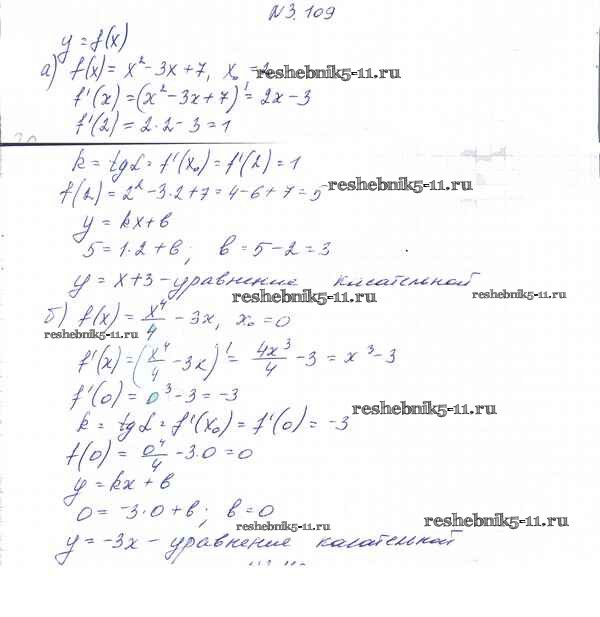 N 3.109
y = f(x)
а) f(x) = x² - 3x + 7, x₀ = 2 reshebnik5-11.ru
f'(x) = (x² - 3x + 7)' = 2x - 3
f'(2) = 2·2 - 3 = 1
k = tg α = f'(x₀) = f'(2) = 1
f(2) = 2² - 3·2 + 7 = 4 - 6 + 7 = 5 reshebnik5-11.ru
y = kx + в
5 = 1·2 + в; в = 5 - 2 = 3
y = x + 3 - уравнение касательной
reshebnik5-11.ru reshebnik5-11.ru
б) f(x) = x⁴/4 - 3x, x₀ = 0
reshebnik5-11.ru
f'(x) = (x⁴/4 - 3x)' = 4x³/4 - 3 = x³ - 3
f'(0) = 0³ - 3 = -3
reshebnik5-11.ru
k = tg α = f'(x₀) = f'(0) = -3
f(0) = 0⁴/4 - 3·0 = 0
y = kx + в
0 = -3·0 + в; в = 0
reshebnik5-11.ru reshebnik5-11.ru
y = -3x - уравнение касательной